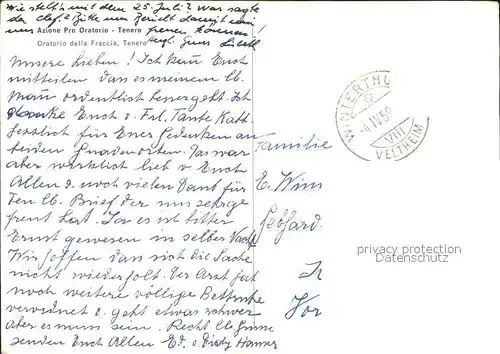 Wie steht's mit dem 25. Juli? Was sagte
der Chef? Bitte um Bericht damit wir
uns freuen können!
Azione Pro Oratorio - Tenero
Oratorio della Fraccia, Tenero
Unsere Lieben! Ich kann Euch
mitteilen dass es meinem lb.
Mann ordentlich besser geht. Ich
danke Euch u. Frl. Tante Kath.
herzlich für Euer Gedenken an
beiden Gnadenorten. Das war
aber wirklich lieb v. Euch
Allen u. noch vielen Dank für
den lb. Brief der uns sehr ge-
freut hat. Ja es ist bitter
Ernst gewesen in selber Nacht
Wir hoffen dass sich die Sache
nicht wiederholt. Der Arzt hat
noch weitere völlige Bettruhe
verordnet u. geht etwas schwer
aber es muss sein. Recht lb. Grüsse
senden Euch Allen
Familie
E.
WINTERTHUR
VIII
VELTHEIM
privacy protection
Datenschutz